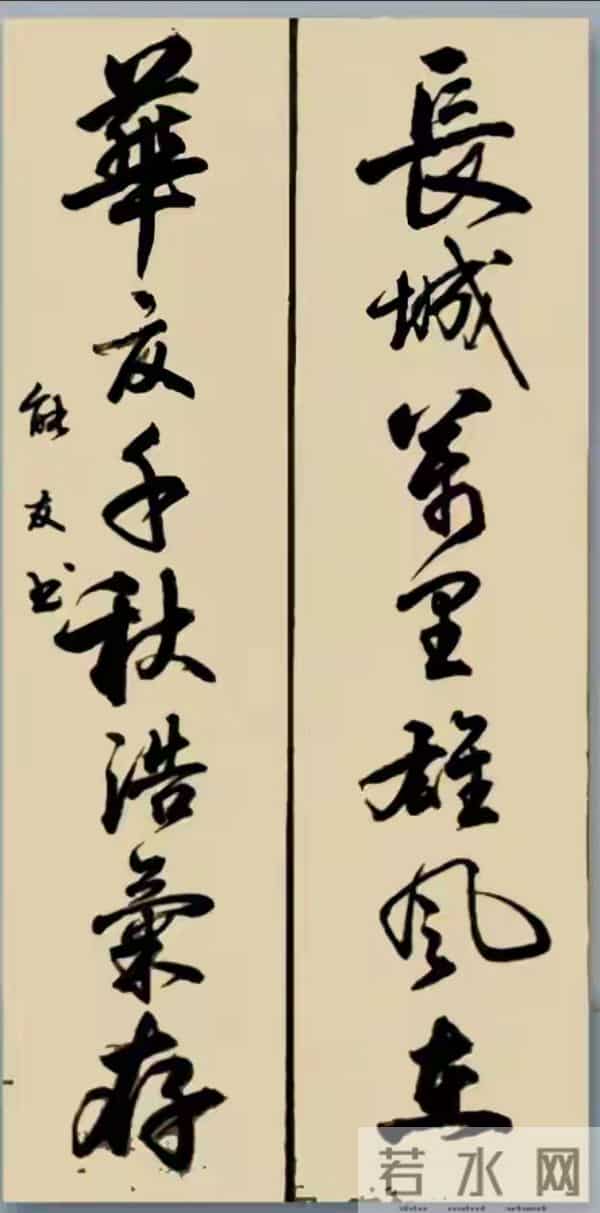 長城萬里雄風在
華夏千秋浩氣存
能友书
若水网